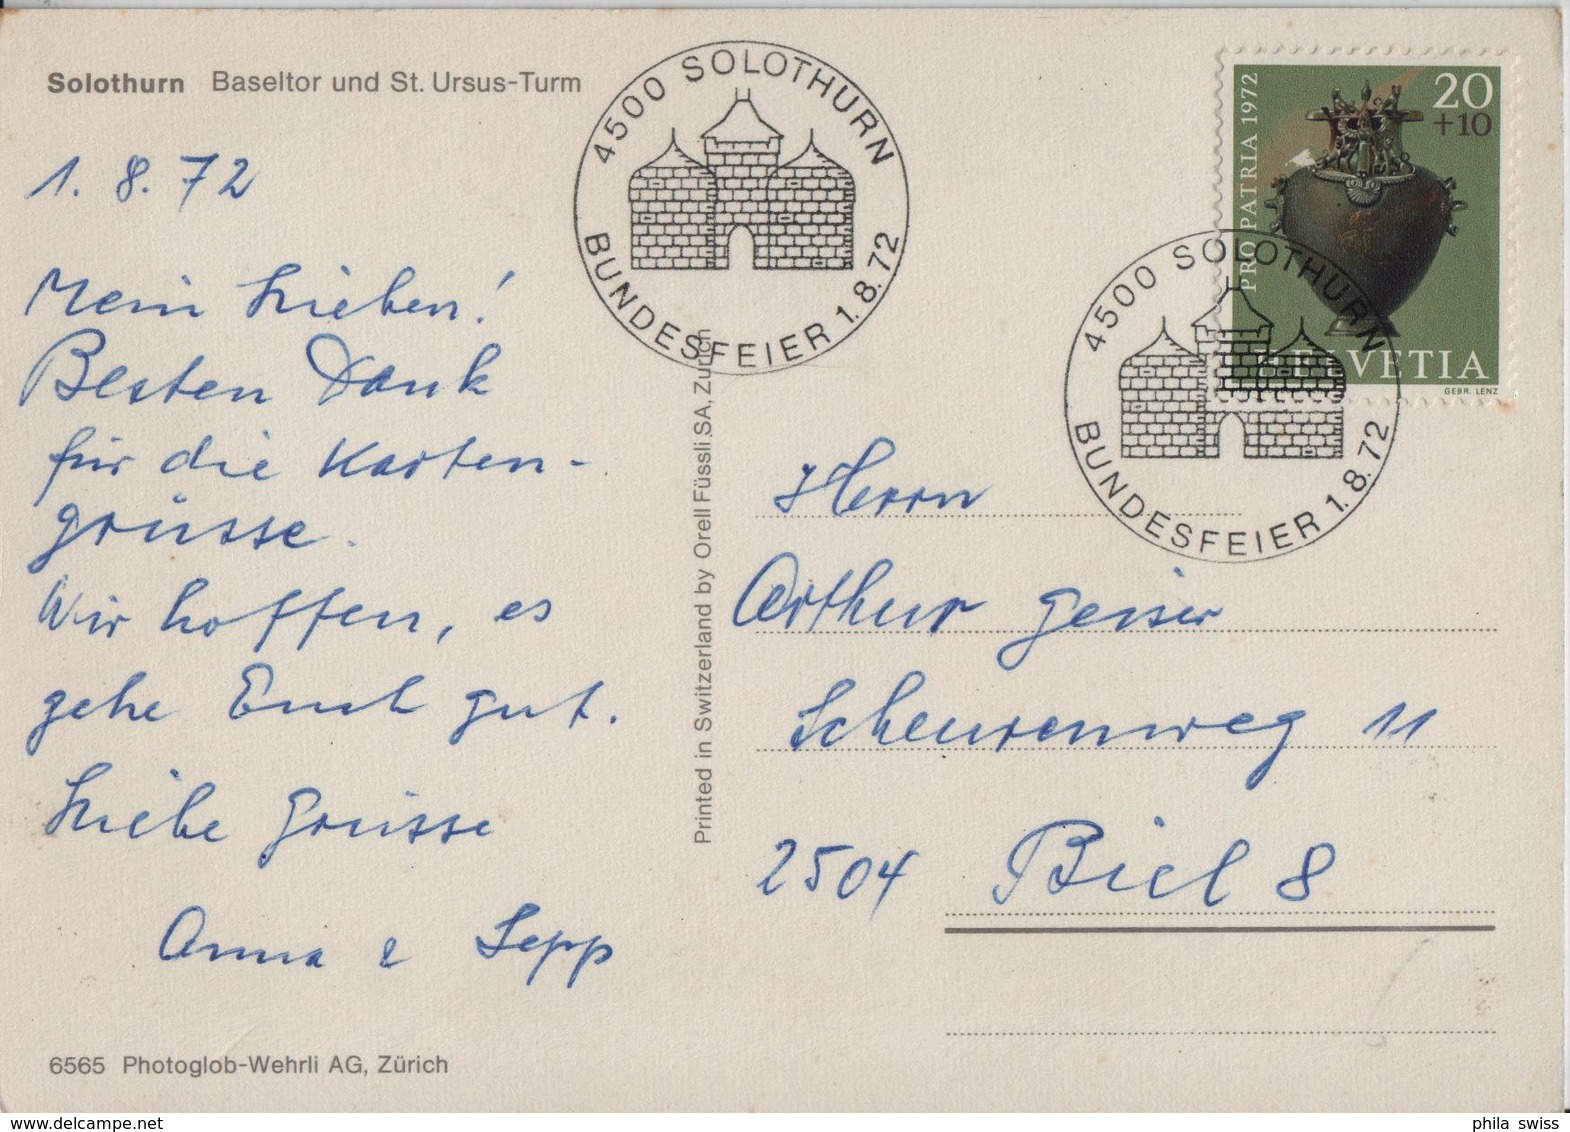 Solothurn Baseltor und St. Ursus-Turm
1. 8. 72
Mein Lieben!
Besten Dank
für die Karten-
grüsse.
Wir hoffen, es
gehe Euch gut.
Liebe Grüsse
Anna & Sepp
6565 Photoglob-Wehrli AG, Zürich
Printed in Switzerland by Orell Füssli SA, Zürich
4500 SOLOTHURN
BUNDESFEIER 1.8.72
PRO PATRIA 1972
20
+10
HELVETIA
GEBR. LENZ
4500 SOLOTHURN
BUNDESFEIER 1.8.72
Herrn
Arthur Geiser
Scheurenweg 11
2504 Biel 8
phila swiss